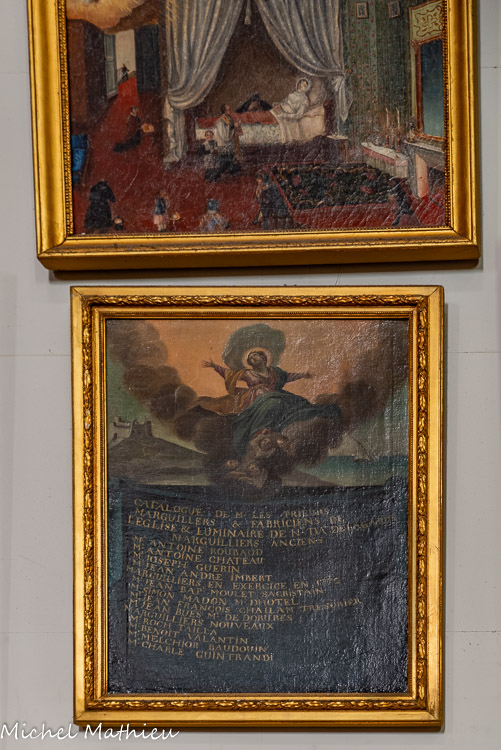 CATALOGUE DE M LES PRIEURS
MARGUILLERS & FABRICIENS DE
LEGLISE & LUMINAIRE DE N DA DE
MARGUILLIERS ANCIENS
M ANTOINE ROUBAUD
M ANTOINE CHATEAU
M JOSEPH GUERIN
M JEAN ANDRE IMBERT
MARGUILLIERS EN EXERCICE EN
M JEAN BAP MOULET SACRISTAIN
M SIMON MADON M DHOTEL
M FRANÇOIS CHAILAN TRESORIER
M JEAN RUEL M DE DORURES
MARGUILLIERS NOUVEAUX
M ROCH FULLA
M BENOIT VALANTIN
M MELCHIOR BAUDOUIN
M CHARLE GUINTRANDI
Michel Mathieu